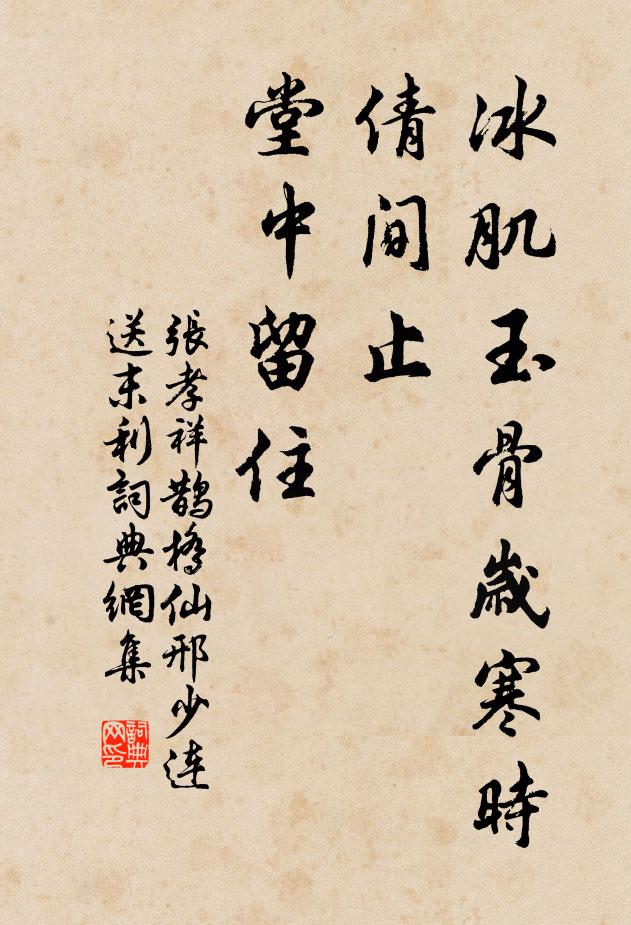 冰肌玉骨歲寒時
倩間止
堂中留住
張孝祥鵲橋仙邢少連
送末利詞典網集
詞典
网印